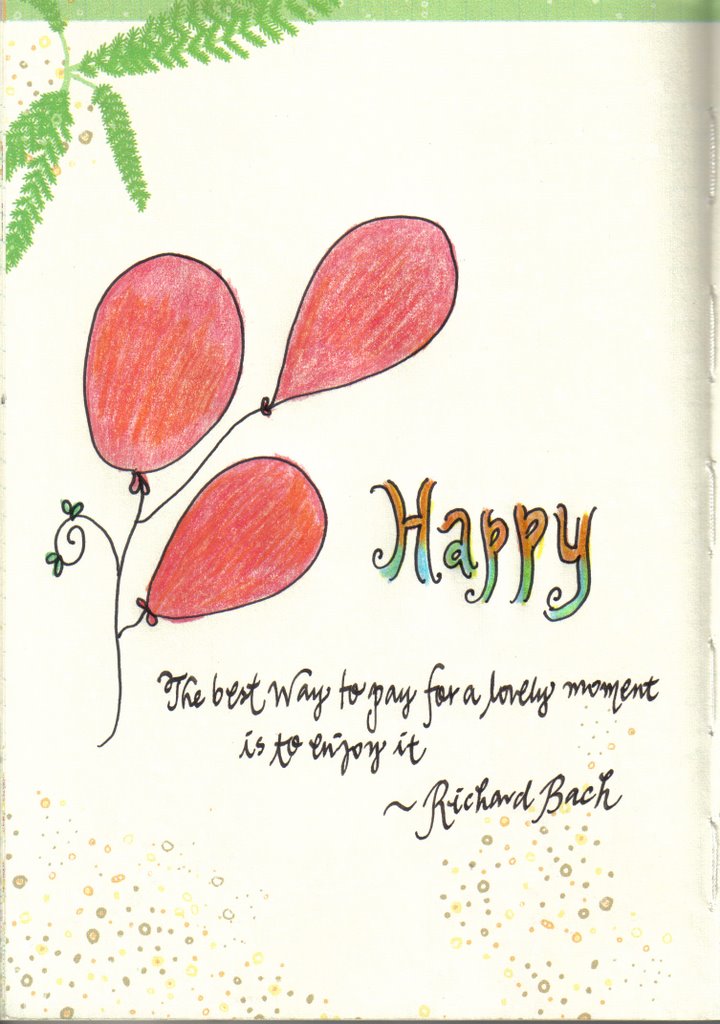 Happy
The best way to pay for a lovely moment
is to enjoy it
~ Richard Bach